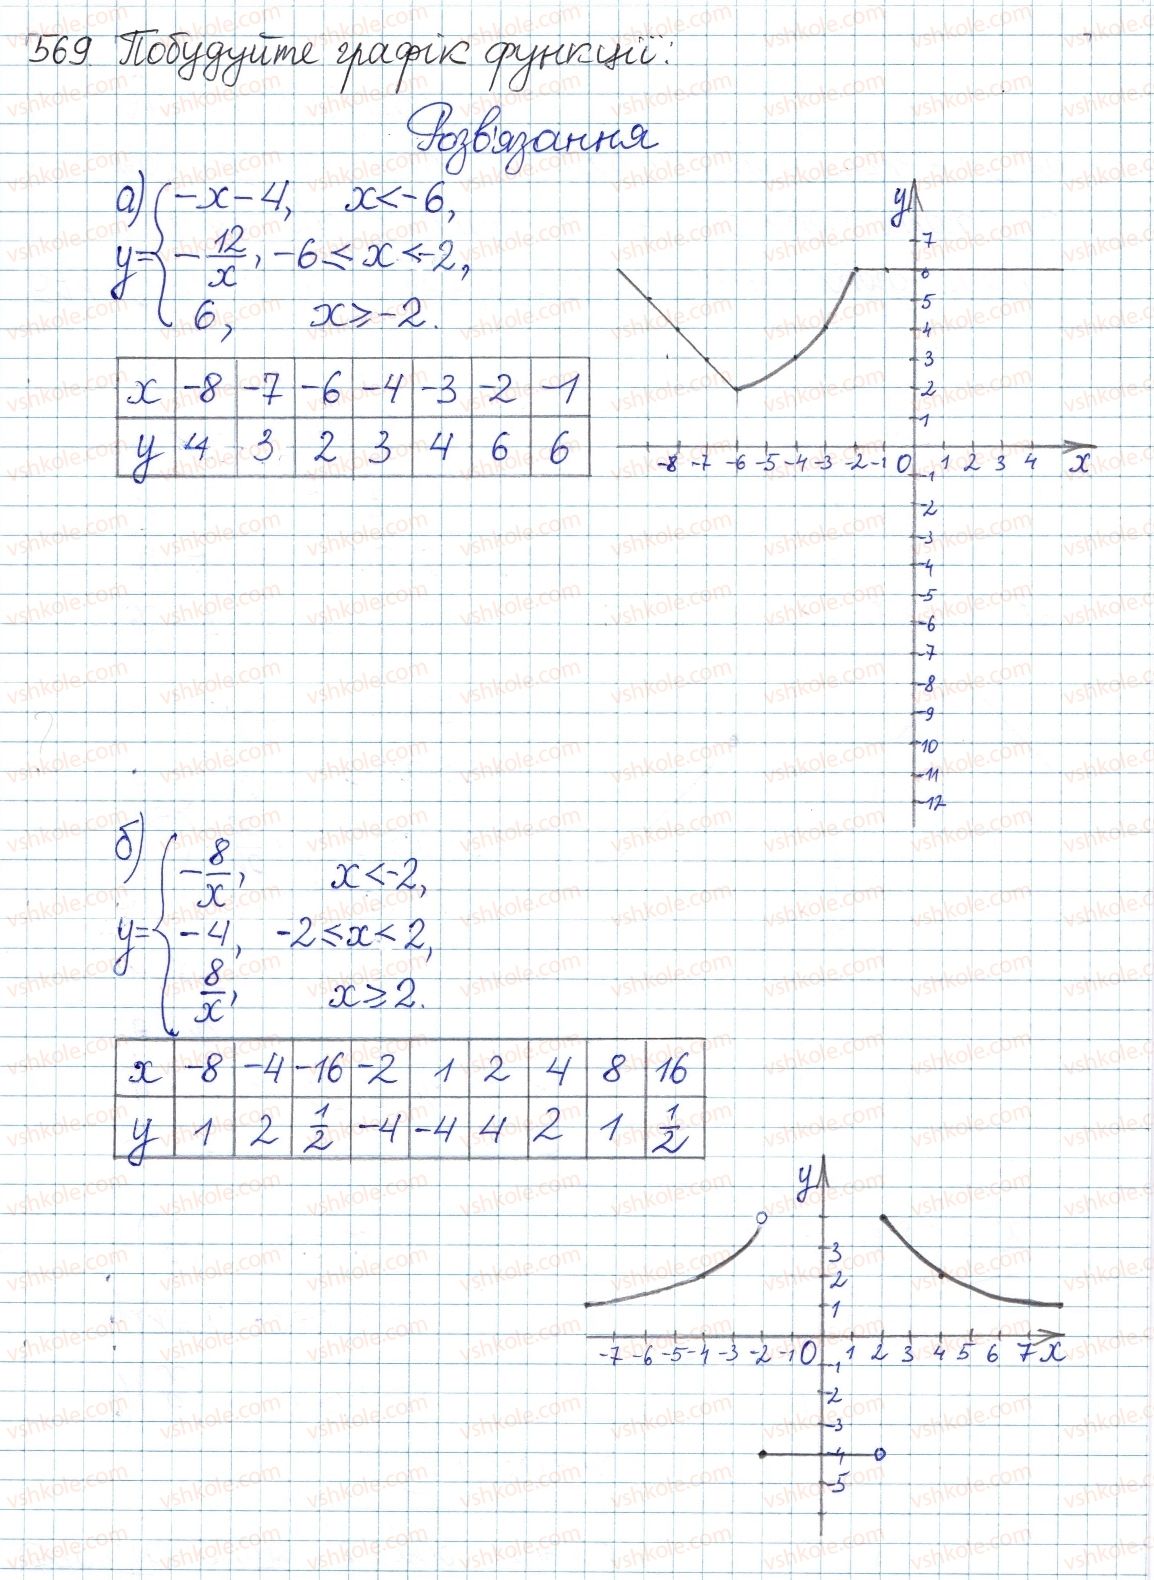 569 Побудуйте графік функції:
Розв'язання
а) y = { -x-4, x<-6,
-12/x, -6≤x<-2,
6, x≥-2.
x -8 -7 -6 -4 -3 -2 -1
y 4 3 2 3 4 6 6
y
7
6
5
4
3
2
1
-8 -7 -6 -5 -4 -3 -2 -1 0 1 2 3 4 x
-1
-2
-3
-4
-5
-6
-7
-8
-9
-10
-11
-12
б) y = { -8/x, x<-2,
-4, -2≤x<2,
8/x, x≥2.
x -8 -4 -16 -2 1 2 4 8 16
y 1 2 1/2 -4 -4 4 2 1 1/2
y
3
2
1
-7 -6 -5 -4 -3 -2 -1 0 1 2 3 4 5 6 7 x
-1
-2
-3
-4
-5
vshkole.com